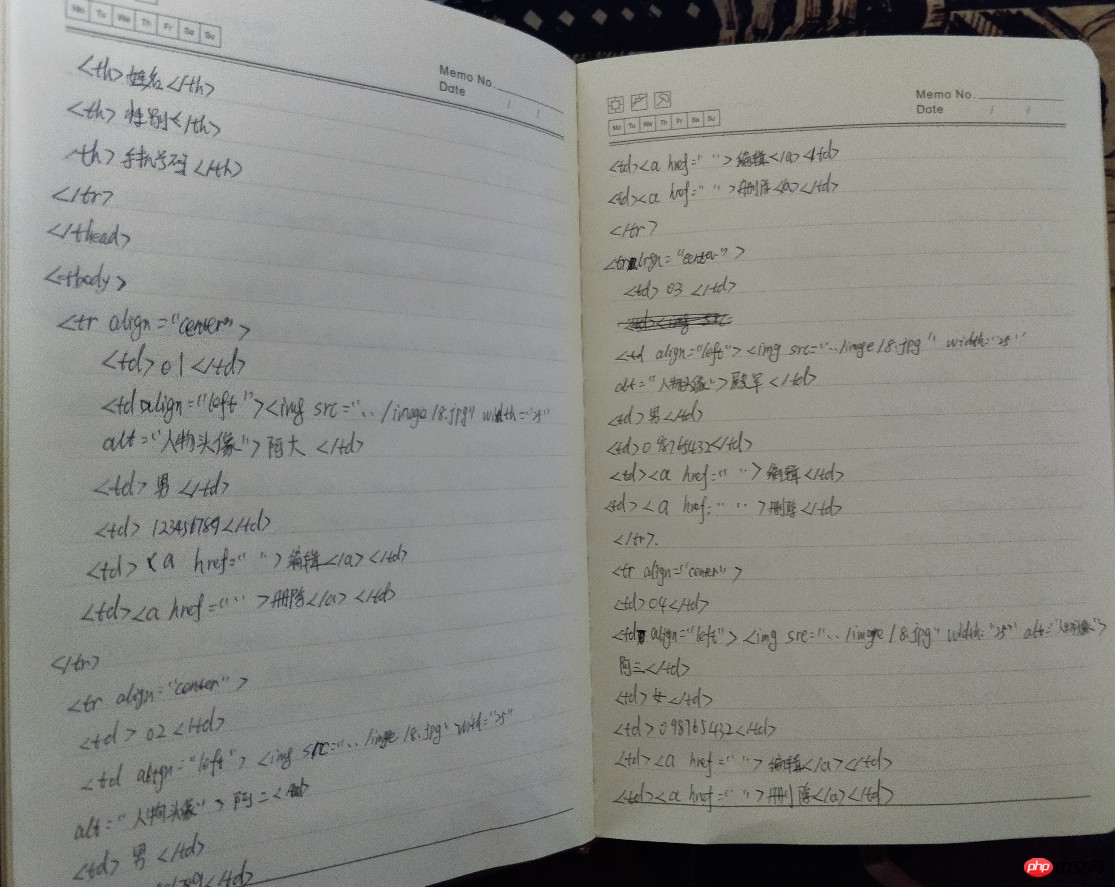 Mo Tu We Th Fr Sa Su
Memo No.
Date / /
<th>姓名</th>
<th>性别</th>
<th>手机号码</th>
</tr>
</thead>
<tbody>
<tr align="center">
<td>01</td>
<td align="left"><img src="../image/8.jpg" width="25"
alt="人物头像">阿大</td>
<td>男</td>
<td>123456789</td>
<td><a href=" ">编辑</a></td>
<td><a href=" ">删除</a></td>
</tr>
<tr align="center">
<td>02</td>
<td align="left"><img src="../imge/8.jpg" with="25"
alt="人物头像">阿二</td>
<td>男</td>
</td>
Memo No.
Date / /
Mo Tu We Th Fr Sa Su
<td><a href=" ">编辑</a></td>
<td><a href=" ">删除</a></td>
</tr>
<tr align="center">
<td>03</td>
<td align="left"><img src="../imge/8.jpg" width="25"
alt="人物头像">殷军</td>
<td>男</td>
<td>098765432</td>
<td><a href=" ">编辑</td>
<td><a href=" ">删除</td>
</tr>.
<tr align="center">
<td>04</td>
<td align="left"><img src="../image/8.jpg" width="25" alt="人物头像">
阿三</td>
<td>女</td>
<td>098765432</td>
<td><a href=" ">编辑</a></td>
<td><a href=" ">删除</a></td>
php